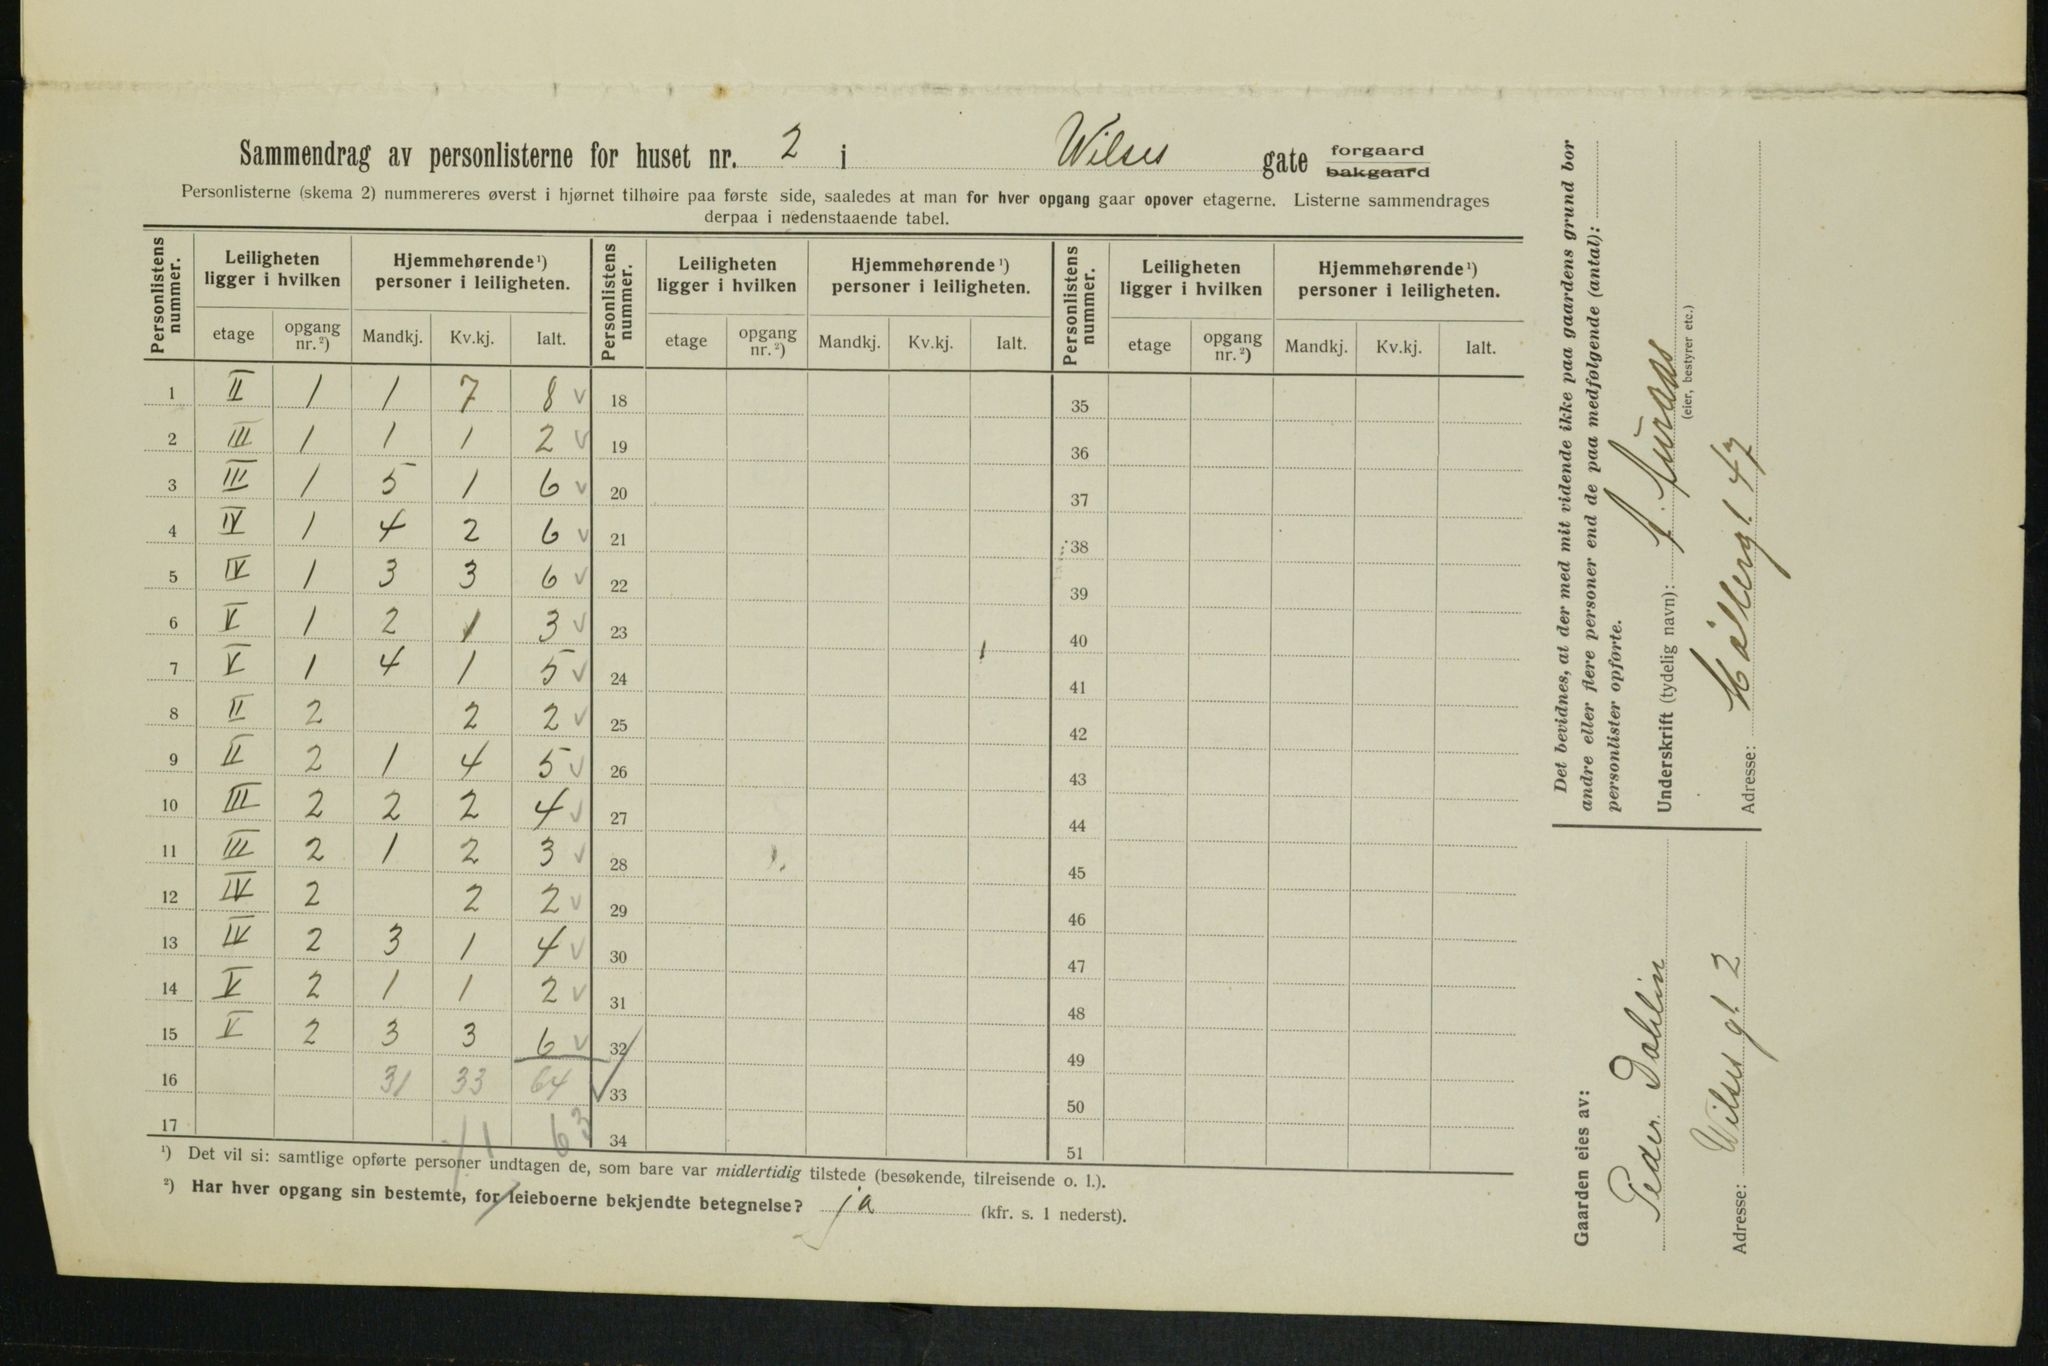 Sammendrag av personlisterne for huset nr. 2 i Wilses gate forgaard bakgaard
Personlisterne (skema 2) nummereres øverst i hjørnet tilhøire paa første side, saaledes at man for hver opgang gaar opover etagerne. Listerne sammendrages
derpaa i nedenstaaende tabel.
Personlistens nummer. Leiligheten ligger i hvilken Hjemmehørende ¹) personer i leiligheten. Personlistens nummer. Leiligheten ligger i hvilken Hjemmehørende ¹) personer i leiligheten. Personlistens nummer. Leiligheten ligger i hvilken Hjemmehørende ¹) personer i leiligheten.
etage opgang nr. ²) Mandkj. Kv.kj. Ialt. etage opgang nr. ²) Mandkj. Kv.kj. Ialt. etage opgang nr. ²) Mandkj. Kv.kj. Ialt.
1 II 1 1 7 8 ✓ 18 35
2 III 1 1 1 2 ✓ 19 36
3 III 1 5 1 6 ✓ 20 37
4 IV 1 4 2 6 ✓ 21 38
5 IV 1 3 3 6 ✓ 22 39
6 V 1 2 1 3 ✓ 23 40
7 V 1 4 1 5 ✓ 24 41
8 II 2 2 2 ✓ 25 42
9 II 2 1 4 5 ✓ 26 43
10 III 2 2 2 4 ✓ 27 44
11 III 2 1 2 3 ✓ 28 45
12 IV 2 2 2 ✓ 29 46
13 IV 2 3 1 4 ✓ 30 47
14 V 2 1 1 2 ✓ 31 48
15 V 2 3 3 6 ✓ 32 49
16 31 33 64 ✓ 33 50
17 63 34 51
¹) Det vil si: samtlige opførte personer undtagen de, som bare var midlertidig tilstede (besøkende, tilreisende o. l.).
²) Har hver opgang sin bestemte, for leieboerne bekjendte betegnelse? ja (kfr. s. 1 nederst).
Det bevidnes, at der med mit vidende ikke paa gaardens grund bor
andre eller flere personer end de paa medfølgende (antal):
personlister opførte.
Underskrift (tydelig navn):
(eier, bestyrer etc.)
Adresse: Møllergt. 47
Gaarden eies av:
Peder Dahlin
Adresse: Wilses gt. 2